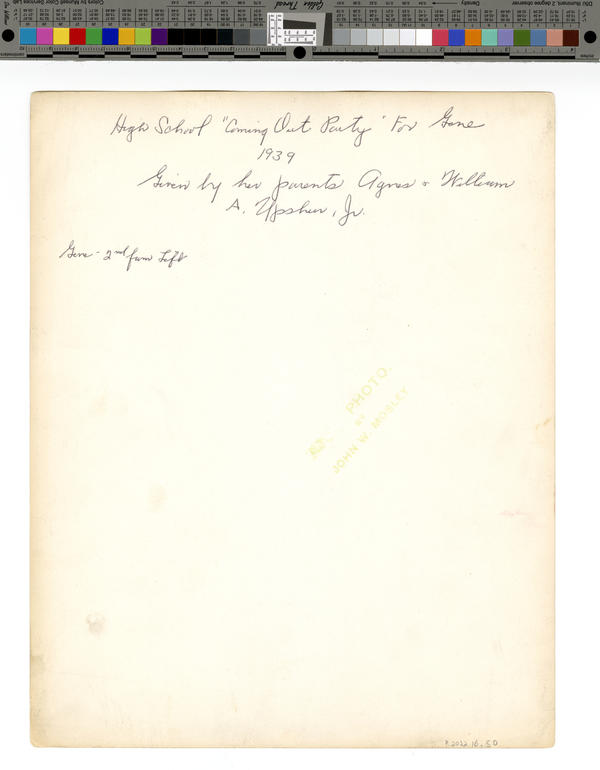 High School "Coming Out Party" For Gene
1939
Given by her parents Agnes & William
A. Upshur, Jr.
Gene - 2nd from Left
PHOTO.
BY
JOHN W. MOSLEY
P.2022.16.50
Golden Thread